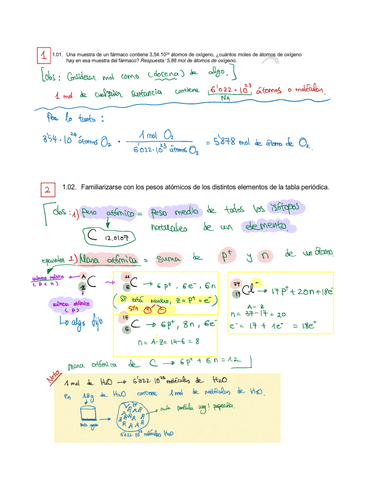 1 1.01. Una muestra de un fármaco contiene 3,54.10²⁴ átomos de oxígeno, ¿cuántos moles de átomos de oxígeno
hay en esa muestra del fármaco? Respuesta: 5,88 mol de átomos de oxígeno.
[obs: Considerar mol como (docena) de algo.]
1 mol de cualquier sustancia contiene 6'022·10²³ átomos o moléculas.
NA
Por lo tanto:
3'54·10²⁴ átomos O₂ · 1 mol O₂ / 6'022·10²³ átomos O₂ = 5'878 mol de átomo de O₂.
2 1.02. Familiarizarse con los pesos atómicos de los distintos elementos de la tabla periódica.
obs: 1) Peso atómico = Peso medio de todos los isótopos
naturales de un elemento
C 12,0107
2) Masa atómica = Suma de p⁺ y n de un átomo
número másico
(p + n)
A
Z
C
número atómico
(p)
↳ algo fijo
C → 6p⁺, 6e⁻, 6n
(Si está neutro, Z = p⁺ = e⁻)
C → 6p⁺, 8n, 6e⁻
n = A-Z = 14-6 = 8
Cl⁻ → 17p⁺ + 20n + 18e⁻
A - Z
n = 37-17 = 20
e⁻ = 17 + 1e⁻ = 18e⁻
Masa atómica de C → 6p⁺ + 6n = 12
Nota
1 mol de H₂O → 6'022·10²³ moléculas de H₂O
en 18g de H₂O contiene 1 mol de moléculas de H₂O.
→ cada partícula muy pequeña.
6'022·10²³ moléculas H₂O